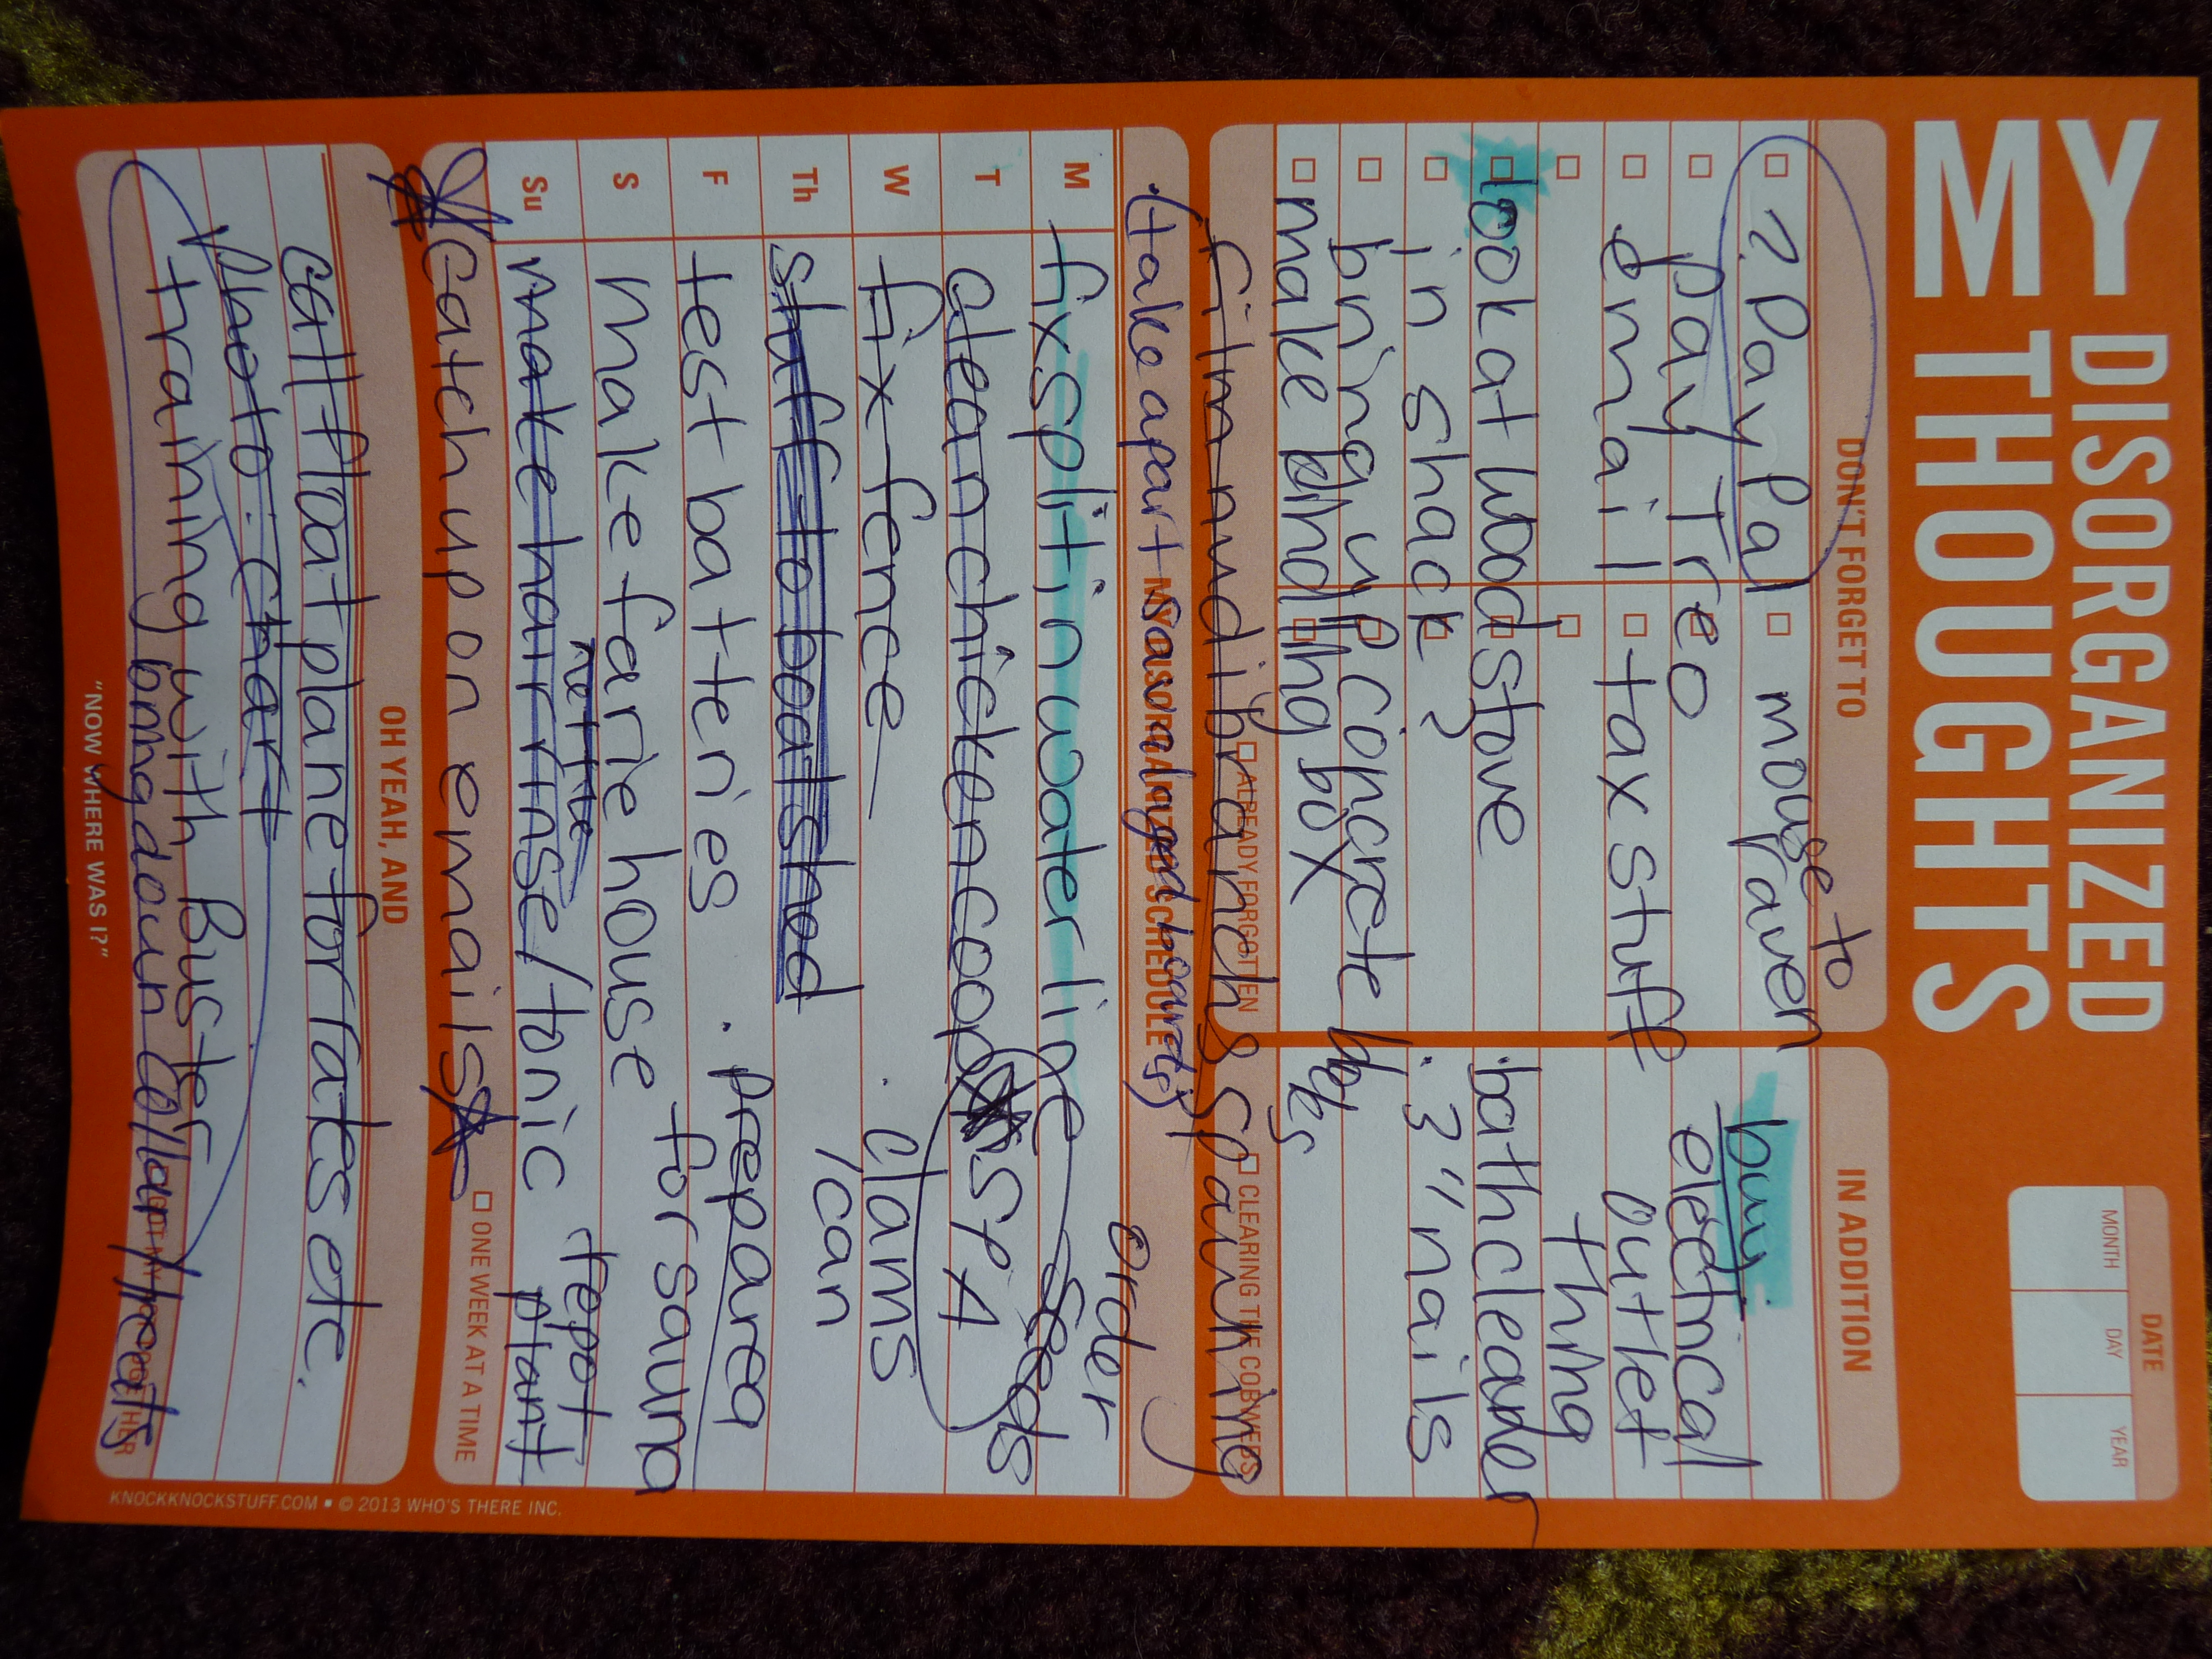 MY DISORGANIZED
THOUGHTS
DATE
MONTH DAY YEAR
DON'T FORGET TO
? Pay Pal
mouse to
raven
pay Treo
email
tax stuff
look at wood stove
in shack?
bring up concrete
make blind
ing box
filmndibranchs spawning
ALREADY FORGOTTEN
CLEARING THE COBWEBS
IN ADDITION
buy
electrical
outlet
thing
bath cleaner
3" nails
(take apart sauna
and
MY DISORGANIZED SCHEDULE
order
seeds
M fix split in water line
T clean chicken coop
SPA
W fix fence
clams
Th stuff to boatshed
/can
F test batteries
prep area
for sauna
S make farie house
nettle
Su make hair rinse/tonic
repot
plant
catch up on emails
ONE WEEK AT A TIME
OH YEAH, AND
call float plane for rates etc.
photo: chart
training with Buster
bring down collar/treats
"NOW WHERE WAS I?"
KNOCKKNOCKSTUFF.COM ▪ © 2013 WHO'S THERE INC.